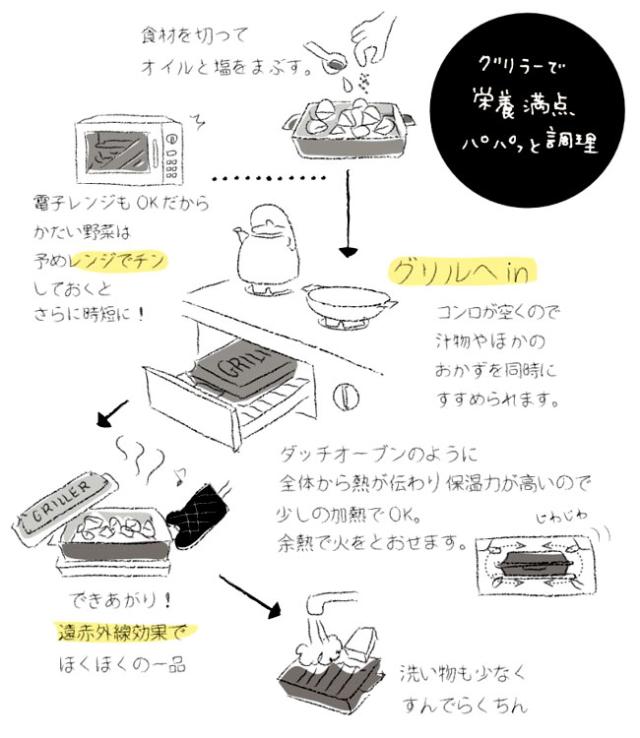 食材を切って
オイルと塩をまぶす。
グリラーで
栄養満点
パパッと調理
電子レンジもOKだから
かたい野菜は
予めレンジでチン
しておくと
さらに時短に！
グリルへin
コンロが空くので
汁物やほかの
おかずを同時に
すすめられます。
GRILL
ダッチオーブンのように
全体から熱が伝わり保温力が高いので
少しの加熱でOK。
余熱で火をとおせます。
じわじわ
GRILLER
できあがり！
遠赤外線効果で
ほくほくの一品
洗い物も少なく
すんでらくちん